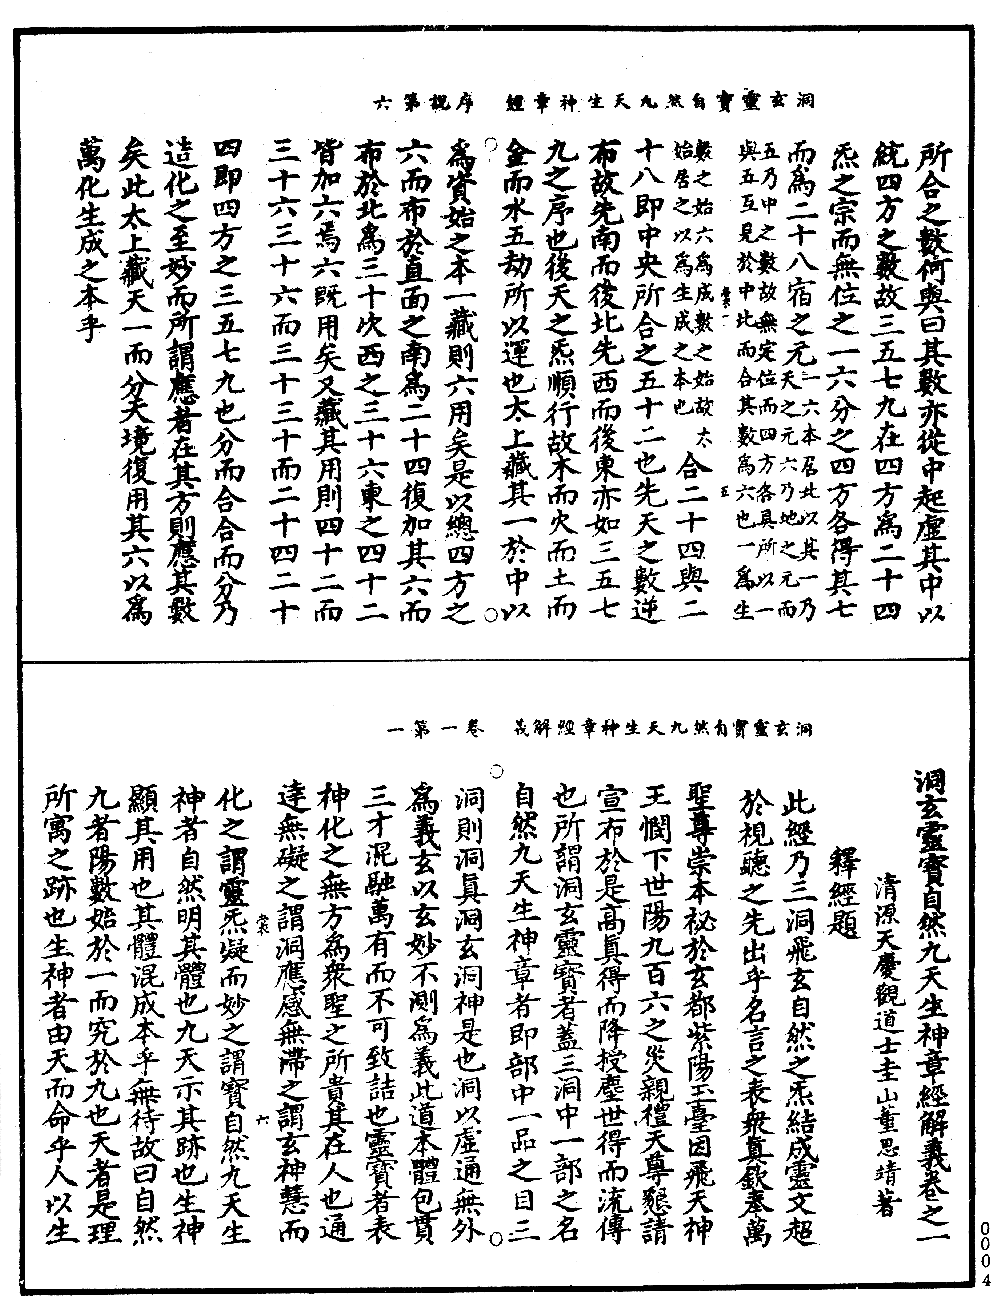 洞玄靈寶自然九天生神章經　序説第六
所合之數何與曰其數亦從中起虛其中以
統四方之數故三五七九在四方爲二十四
炁之宗而無位之一六分之四方各得其七
而爲二十八宿之元一六本居北以其一乃
天之元六乃地之元而
五乃中之數故無定位而四方各具所以一
與五互見於中此而合其數爲六也一爲生
數之始六爲成數之始故太
始居之以爲生成之本也
合二十四與二
十八即中央所合之五十二也先天之數逆
布故先南而後北先西而後東亦如三五七
九之序也後天之炁順行故木而火而土而
金而水五劫所以運也太上藏其一於中以
爲資始之本一藏則六用矣是以總四方之
六而布於直面之南爲二十四復加其六而
布於北爲三十次西之三十六東之四十二
皆加六焉六既用矣又藏其用則四十二而
三十六三十六而三十三十而二十四二十
四即四方之三五七九也分而合合而分乃
造化之至妙而所謂應者在其方則應其數
矣此太上藏天一而分天境復用其六以爲
萬化生成之本乎
洞玄靈寶自然九天生神章經解義　卷一第一
洞玄靈寶自然九天生神章經解義卷之一
清源天慶觀道士圭山董思靖著
釋經題
此經乃三洞飛玄自然之炁結成靈文超
於視聽之先出乎名言之表衆真欽奉萬
聖尊崇本祕於玄都紫陽玉臺因飛天神
王憫下世陽九百六之災親禮天尊懇請
宣布於是高真得而降授塵世得而流傳
也所謂洞玄靈寶者蓋三洞中一部之名
自然九天生神章者即部中一品之目三
洞則洞真洞玄洞神是也洞以虛通無外
爲義玄以玄妙不測爲義此道本體包貫
三才混融萬有而不可致詰也靈寶者表
神化之無方爲衆聖之所貴其在人也通
達無礙之謂洞應感無滯之謂玄神慧而
化之謂靈炁凝而妙之謂寶自然九天生
神者自然明其體也九天示其跡也生神
顯其用也其體混成本乎無待故曰自然
九者陽數始於一而究於九也天者是理
所寓之跡也生神者由天而命乎人以生
0004